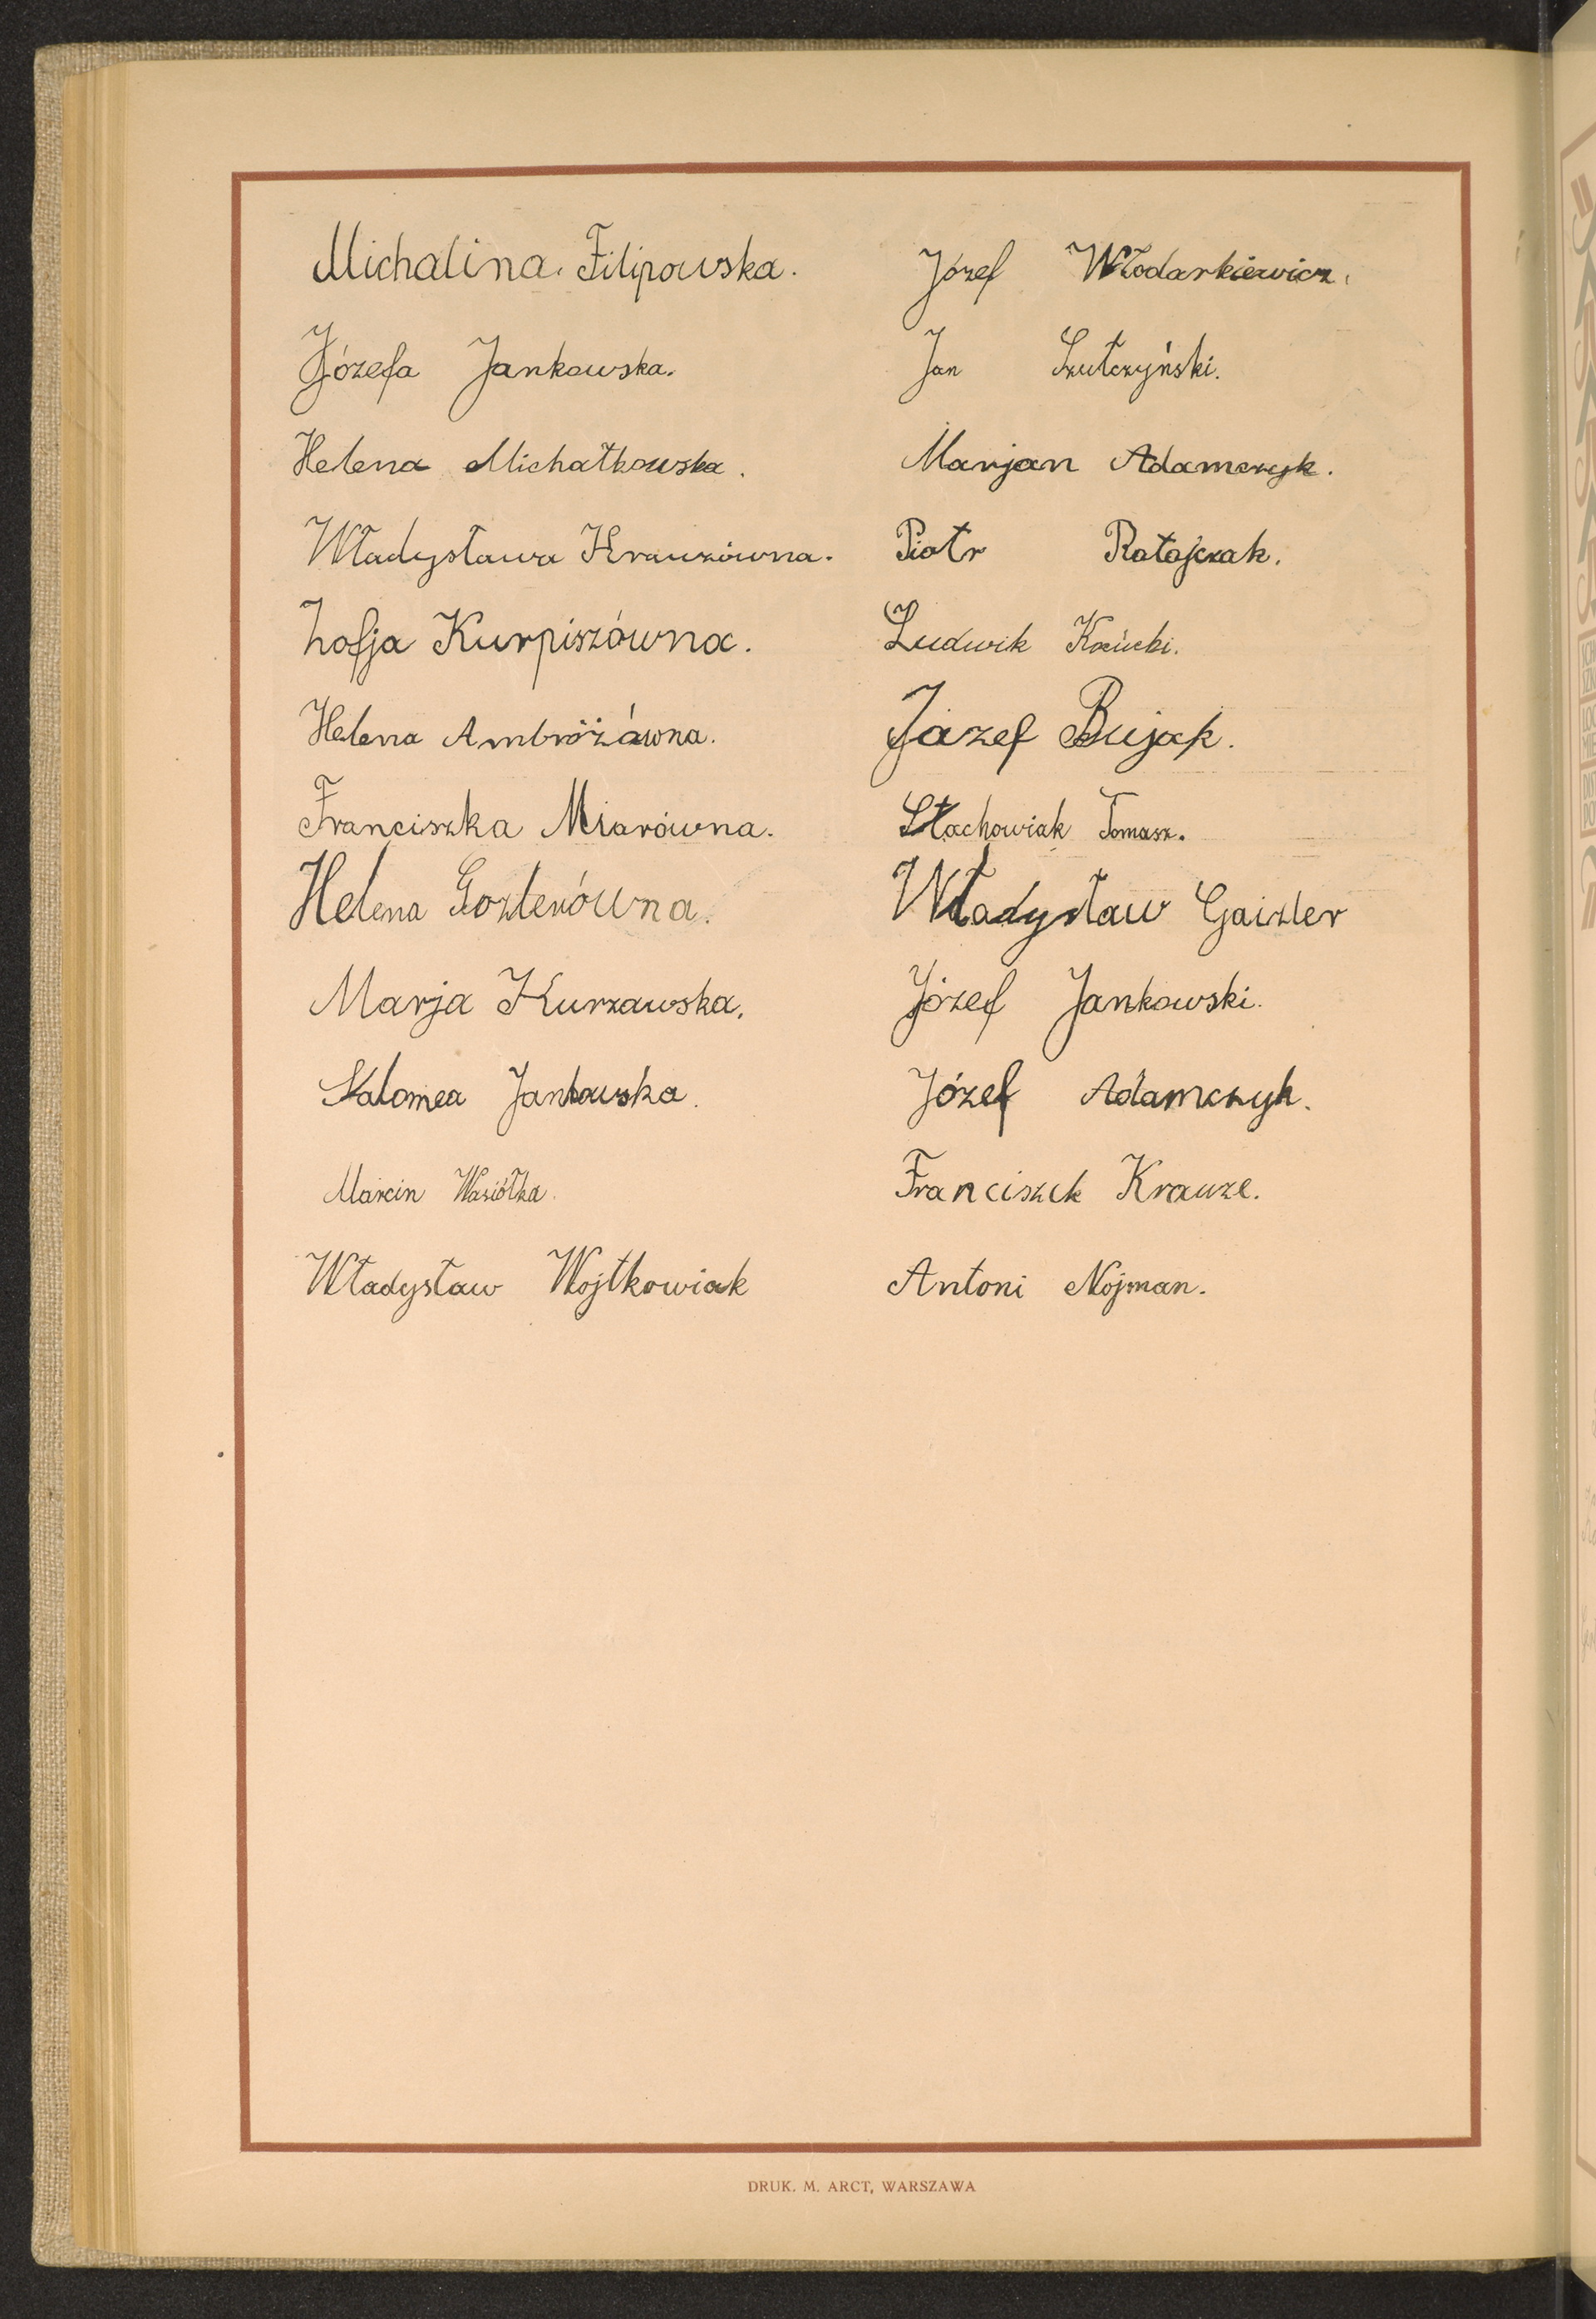 Michalina Filipowska.
Józefa Jankowska.
Helena Michałkowska.
Władysława Krauzówna.
Zofja Kurpiszówna.
Helena Ambróżówna.
Franciszka Miarówna.
Helena Gozlerówna.
Marja Kurzawska.
Salomea Jankowska.
Marcin Wasiółka.
Władysław Wojtkowiak
Józef Włodarkiewicz.
Jan Szułczyński.
Marjan Adamczyk.
Piotr Ratajczak.
Ludwik
Józef Bujak.
Stachowiak Tomasz.
Władysław Gaizler
Józef Jankowski.
Józef Adamczyk.
Franciszek Krauze.
Antoni Nojman.
DRUK. M. ARCT, WARSZAWA